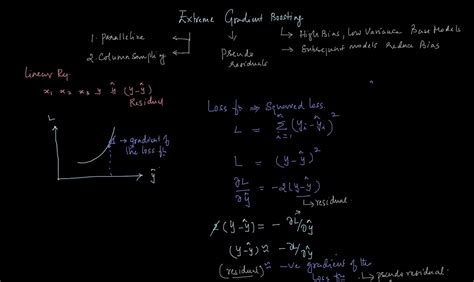 Extreme Gradient Boosting
1. Parallelize
2. Column Sampling
Pseudo
residuals
↳ High Bias, Low Variance Base Models
↳ Subsequent models reduce Bias
Linear Reg
x₁ x₂ x₃ y ŷ (y-ŷ)
Residual
L
→ gradient of
the loss fn
ŷ
Loss fn ⇒ Squared loss
L = Σ_{i=1}^{n} (yᵢ - ŷᵢ)²
L = (y-ŷ)²
∂L/∂ŷ = -2(y-ŷ)
↳ residual
2(y-ŷ) = - ∂L/∂ŷ
(y-ŷ) ≈ - ∂L/∂ŷ
(residual) ≈ -ve gradient of the
loss fn
↳ pseudo residual